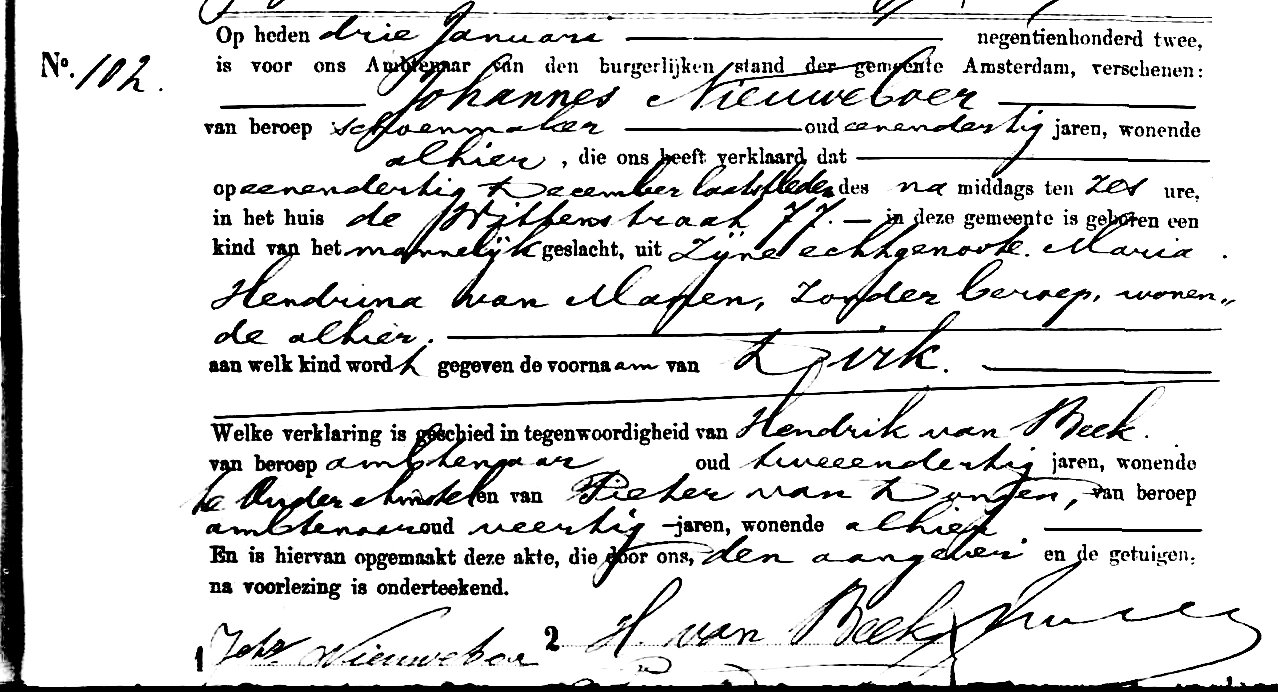 Op heden drie Januari negentienhonderd twee,
No. 102.
is voor ons Ambtenaar van den burgerlijken stand der gemeente Amsterdam, verschenen:
Johannes Nieuweboer
van beroep schoenmaker oud eenendertig jaren, wonende
alhier, die ons heeft verklaard dat
op eenendertig December laatstleden des na middags ten zes ure,
in het huis de Wittenstraat 77. in deze gemeente is geboren een
kind van het mannelijk geslacht, uit zijne echtgenoote. Maria
Hendrina van Manen, zonder beroep, wonen„
de alhier.
aan welk kind wordt gegeven de voornaam van Dirk.
Welke verklaring is geschied in tegenwoordigheid van Hendrik van Beek.
van beroep ambtenaar oud tweeendertig jaren, wonende
te Ouder Amstel en van Pieter van Dongen, van beroep
ambtenaar oud veertig jaren, wonende alhier
En is hiervan opgemaakt deze akte, die door ons, den aangever en de getuigen,
na voorlezing is onderteekend.
1 Johs Nieuweboer 2 H. van Beek